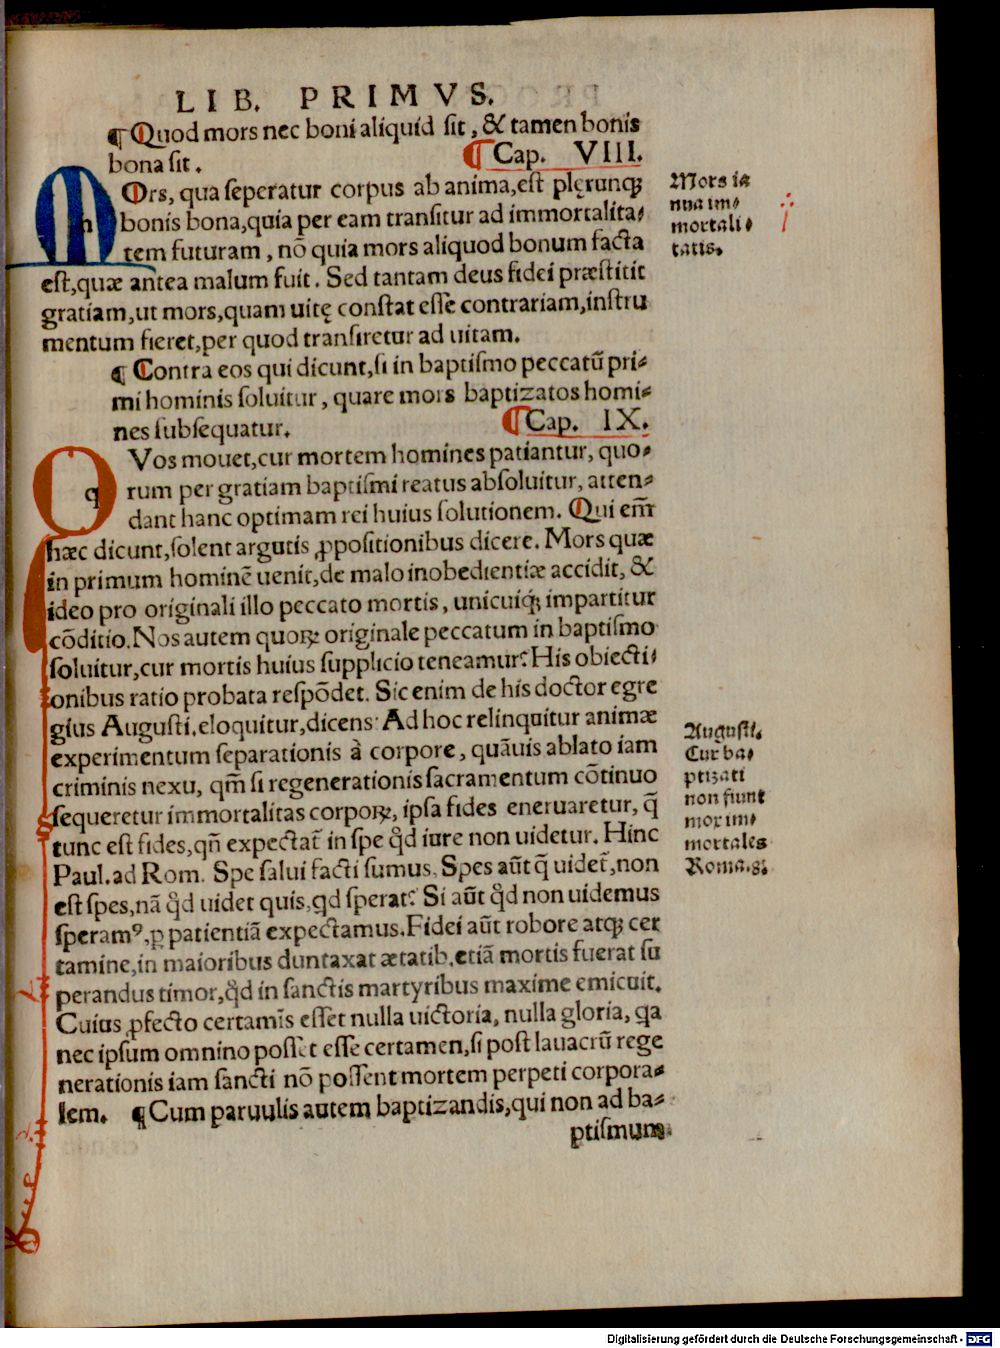 LIB. PRIMVS.
¶ Quod mors nec boni aliquid sit, & tamen bonis
bona sit. ¶ Cap. VIII.
MOrs, qua seperatur corpus ab anima, est plęrunqꝫ
bonis bona, quia per eam transitur ad immortalita-
tem futuram, nõ quia mors aliquod bonum facta
est, quæ antea malum fuit. Sed tantam deus fidei præstitit
gratiam, ut mors, quam uitę constat esse contrariam, instru
mentum fieret, per quod transiretur ad uitam.
¶ Contra eos qui dicunt, si in baptismo peccatũ pri-
mi hominis soluitur, quare mors baptizatos homi-
nes subsequatur. ¶ Cap. IX.
QVos mouet, cur mortem homines patiantur, quo-
rum per gratiam baptismi reatus absoluitur, atten-
dant hanc optimam rei huius solutionem. Qui em̃
hæc dicunt, solent argutis ꝓpositionibus dicere. Mors quæ
in primum hominẽ uenit, de malo inobedientiæ accidit, &
ideo pro originali illo peccato mortis, unicuiqꝫ impartitur
cõditio. Nos autem quoꝝ originale peccatum in baptismo
soluitur, cur mortis huius supplicio teneamur? His obiecti-
onibus ratio probata respõdet. Sic enim de his doctor egre
gius Augusti. eloquitur, dicens: Ad hoc relinquitur animæ
experimentum separationis à corpore, quãuis ablato iam
criminis nexu, qm̃ si regenerationis sacramentum cõtinuo
sequeretur immortalitas corpoꝝ, ipsa fides eneruaretur, q̃
tunc est fides, qñ expectat̃ in spe qď iure non uidetur. Hinc
Paul. ad Rom. Spe salui facti sumus. Spes aũt q̃ uidet̃, non
est spes, nã qď uidet quis, qd sperat? Si aũt qď non uidemus
speramꝰ, ꝑ patientiã expectamus. Fidei aũt robore atqꝫ cer
tamine, in maioribus duntaxat ætatib. etiã mortis fuerat su
perandus timor, qď in sanctis martyribus maxime emicuit.
Cuius ꝓfecto certamĩs esset nulla uictoria, nulla gloria, qa
nec ipsum omnino posset esse certamen, si post lauacrũ rege
nerationis iam sancti nõ possent mortem perpeti corpora-
lem. ¶ Cum paruulis autem baptizandis, qui non ad ba-
ptismum
Mors ia
nua im-
mortali-
tatis.
Augusti.
Cur ba-
ptizati
non fiunt
mox im-
mortales
Roma. 8.
Digitalisierung gefördert durch die Deutsche Forschungsgemeinschaft - DFG